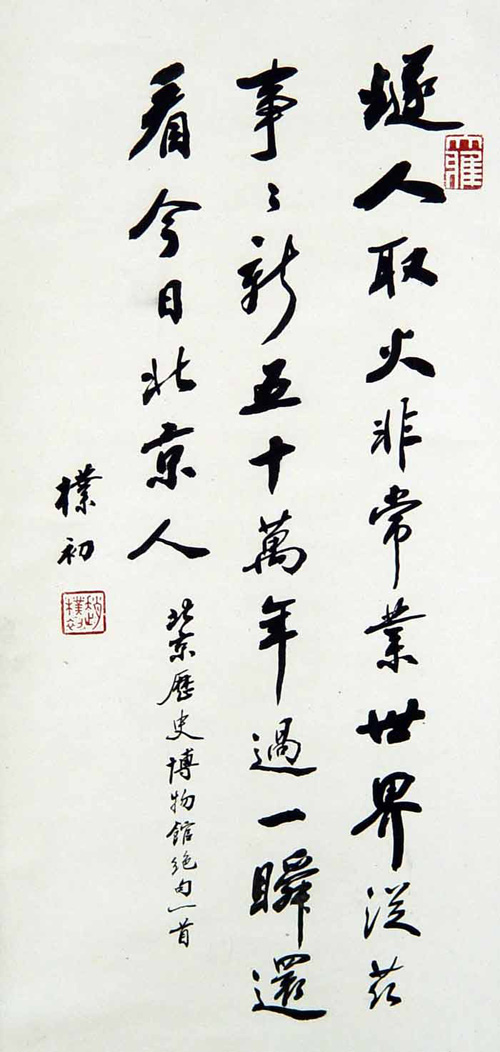 燧人取火非常業世界從茲
事々新五十萬年過一瞬還
看今日北京人
北京歷史博物館絕句一首
樸初
趙樸初